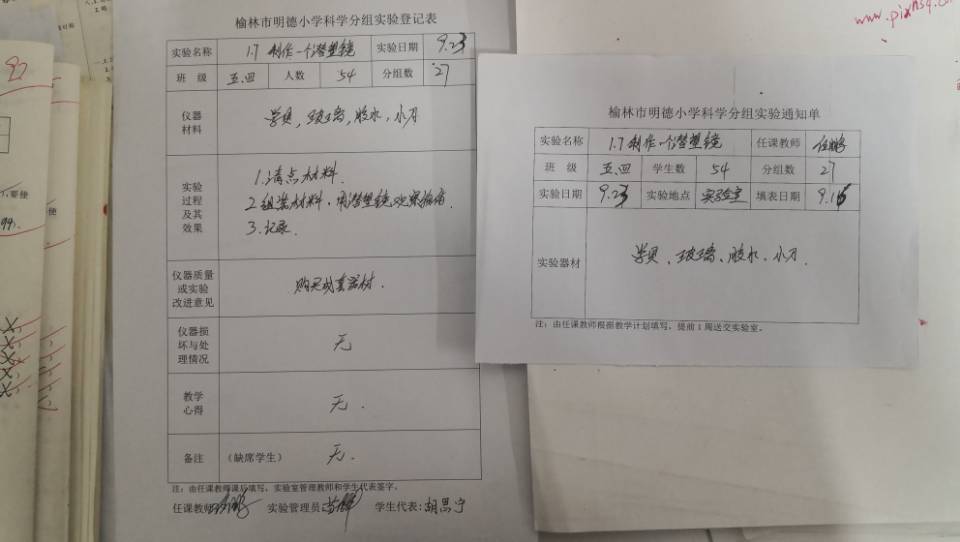 榆林市明德小学科学分组实验登记表
实验名称 1.7 制作一个潜望镜 实验日期 9.23
班 级 五.四 人数 54 分组数 27
仪器
材料
玻璃,胶水,小刀
实验
过程
及其
效果
1.清点材料.
2.组装材料,用潜望镜观察
3.记录.
仪器质量
或实验
改进意见
购买成套器材.
仪器损
坏与处
理情况
无.
教学
心得
无.
备注 (缺席学生) 无.
注:由任课教师课后填写,实验室管理教师和学生代表签字。
任课教师 实验管理员 学生代表:胡思宁
榆林市明德小学科学分组实验通知单
实验名称 1.7 制作一个潜望镜 任课教师
班 级 五.四 学生数 54 分组数 27
实验日期 9.23 实验地点 实验室 填表日期
实验器材 玻璃、胶水、小刀.
注:由任课教师根据教学计划填写,提前1周送交实验室。